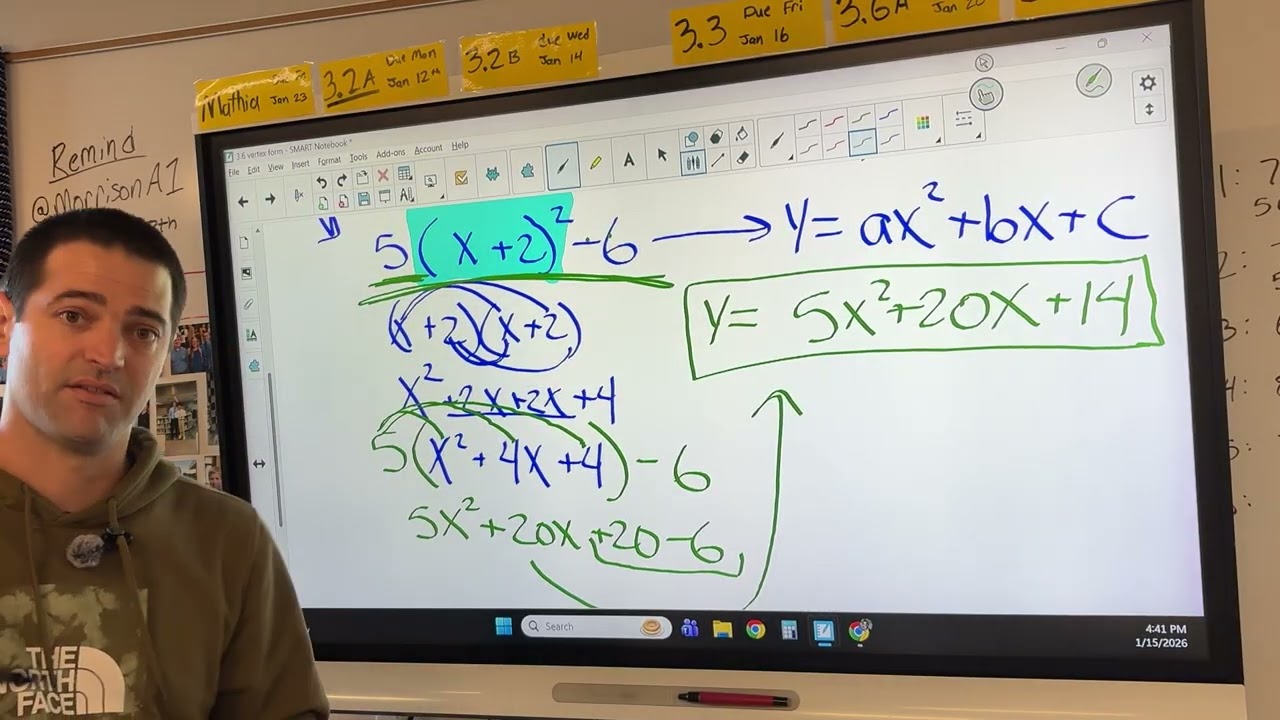 Mathia
Jan 23
3.2A Due Mon
Jan 12th
3.2B due Wed
Jan 14
3.3 Due Fri
Jan 16
3.6A Jan 20
Remind
@MorrisonA1
3.6 vertex form - SMART Notebook *
File Edit View Insert Format Tools Add-ons Account Help
5(x+2)²-6 → y=ax²+bx+c
y= 5x²+20x+14
(x+2)(x+2)
x²+2x+2x+4
5(x²+4x+4)-6
5x²+20x+20-6
Search
4:41 PM
1/15/2026
THE
NORTH
FACE